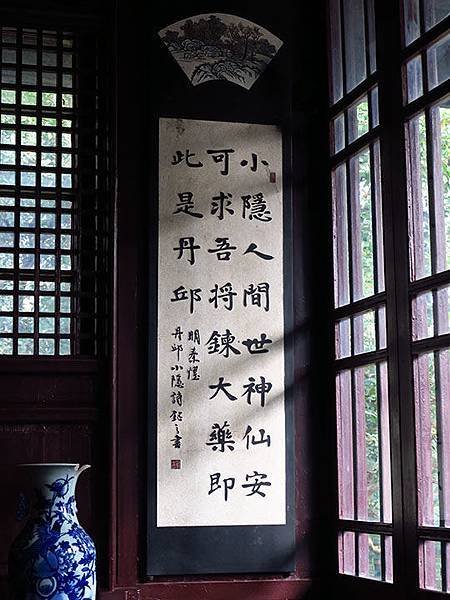 小隱人間世神仙安
可求吾将鍊大藥即
此是丹邱
明秦燿
丹邱小隱詩
書